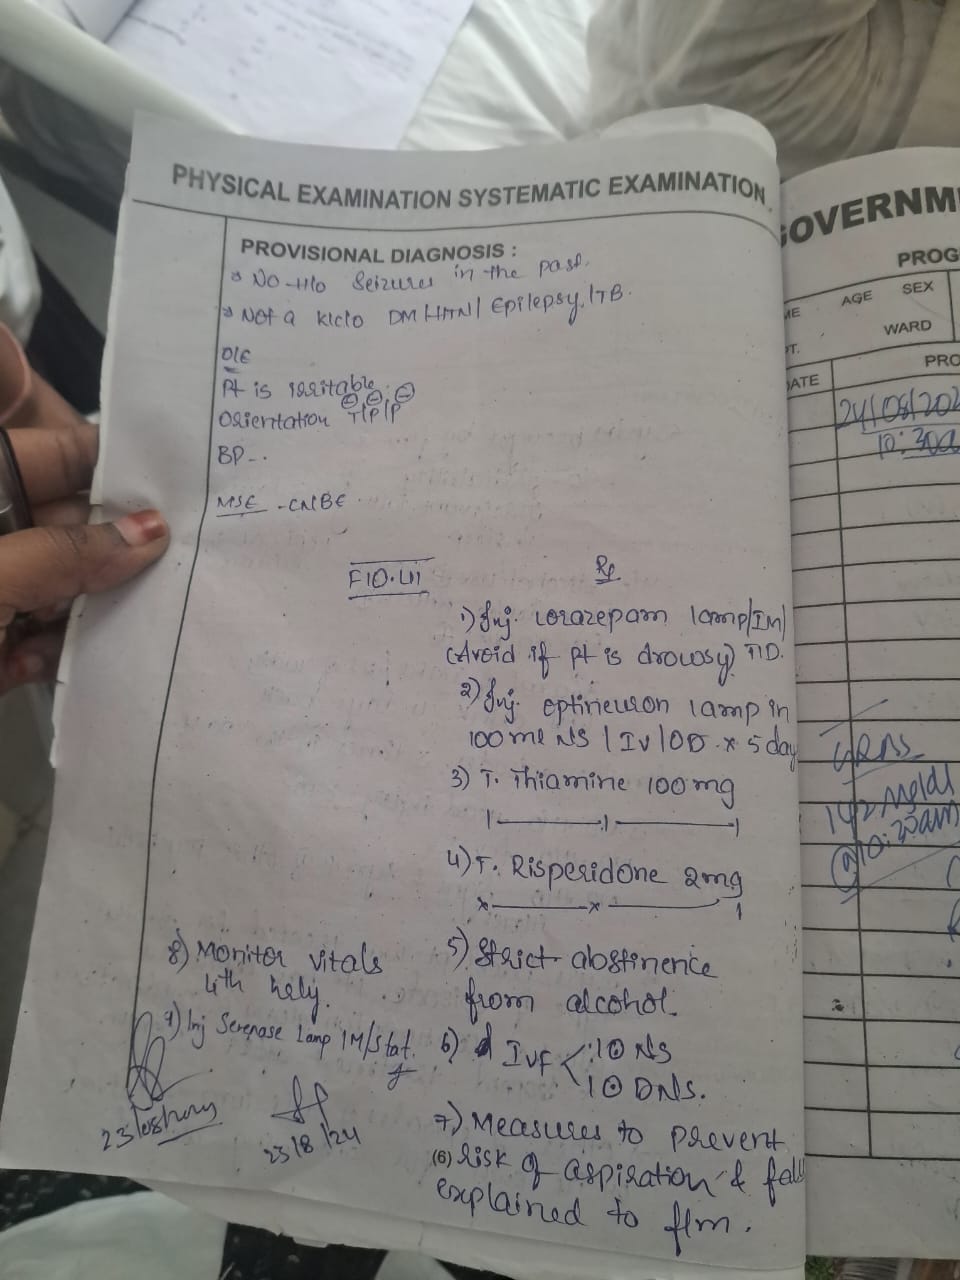 PHYSICAL EXAMINATION SYSTEMATIC EXAMINATION
PROVISIONAL DIAGNOSIS :
No H/o Seizures in the past.
Not a k/c/o DM/HTN/Epilepsy/TB.
O/E
Pt is irritable.
Orientation T/P/P
BP-.
MSE - CNBE
F10.
Rp
1) Inj. lorazepam 1amp/IM/
(Avoid if pt is drowsy) TID.
2) Inj. optineuron 1amp in
100ml NS / IV/OD x 5day
3) T. Thiamine 100mg
1—1—1
4) T. Risperidone 2mg
x—x—1
5) Strict abstinence
from alcohol.
6) IVF < 10 NS
10 DNS.
7) Measures to prevent
risk of aspiration & fall
explained to f/m.
(6)
8) Monitor vitals
4th hrly.
9) Inj Serenase 1amp IM/stat.
23/8/24
GOVERNM
PROG
ME
AGE
SEX
PT.
WARD
DATE
PRO
24/08/202
10:30a
GRBS
142 mg/dl
@10:20am